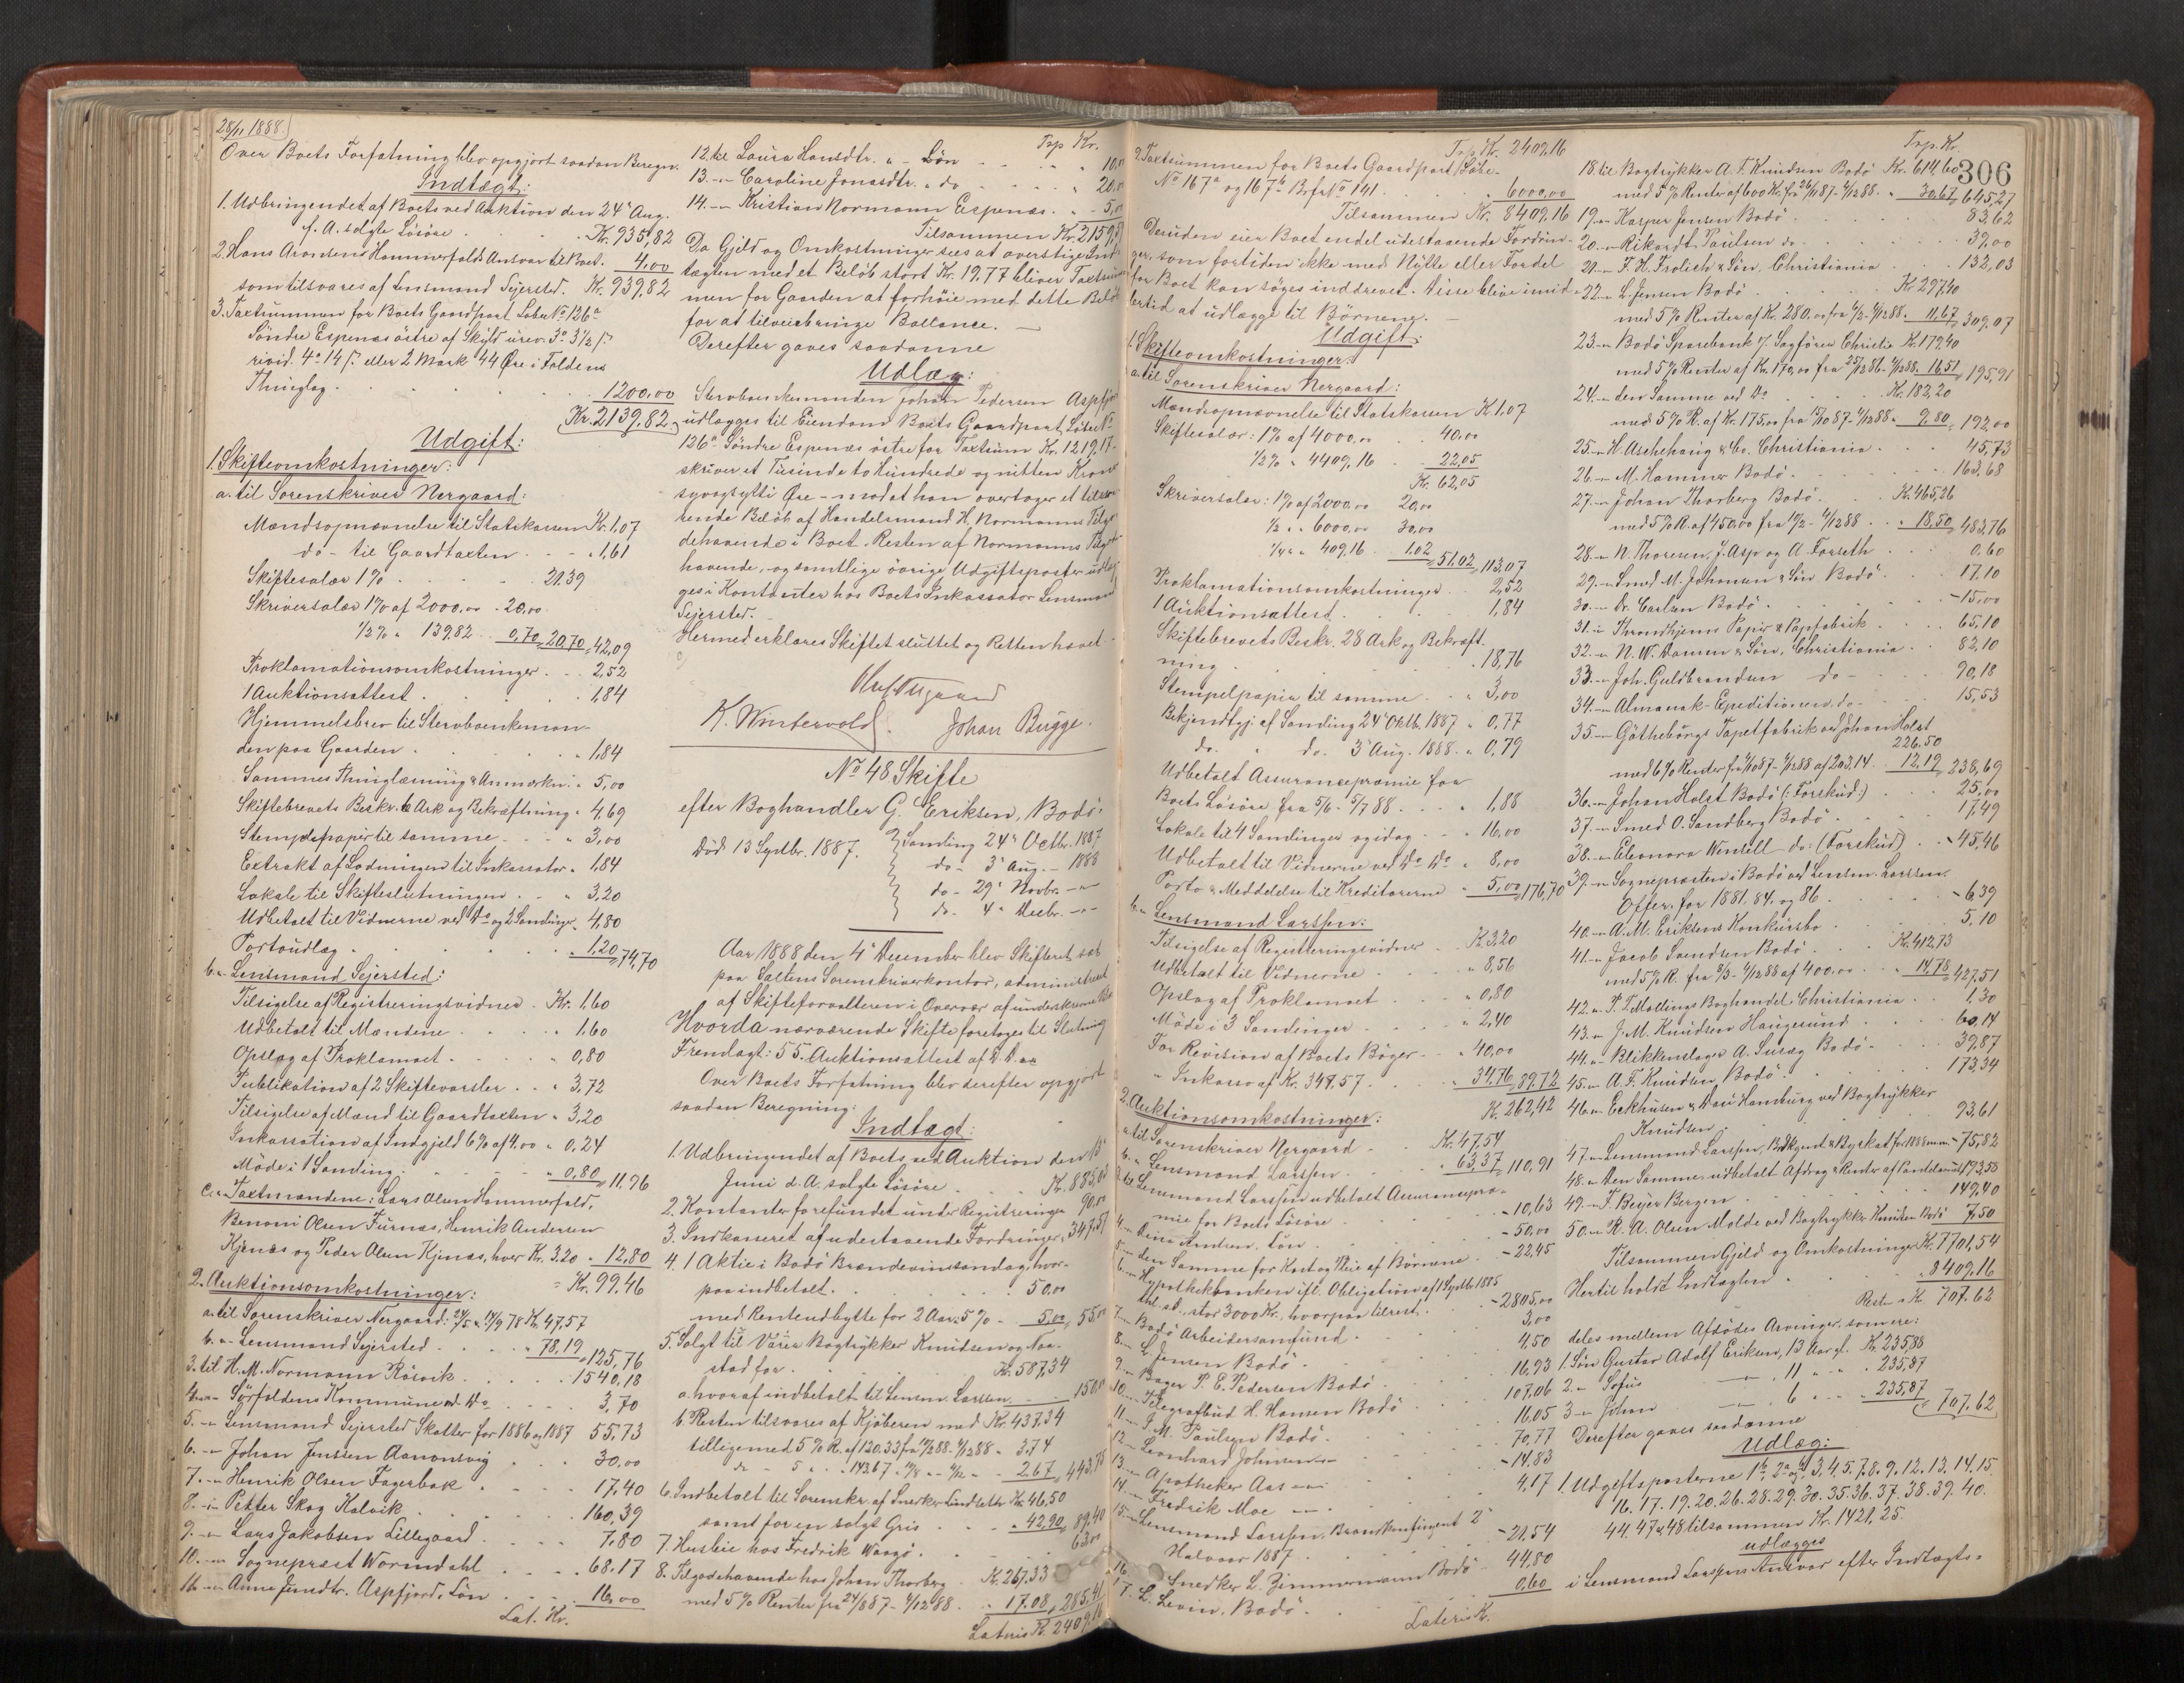 28/11 1888.
Over Boets Forfatning blev opgjort saadan Beregn.
Indtægt:
1. Udbringendet af Boets ved Auktion den 24' Aug.
f. A. solgte Lösöre . Kr. 935,82
2. Hans Arondsens Hammerfalds Ansvar til Boet. 4,00
som tilsvares af Lensmand Sejersted. Kr. 939,82
3. Taxtsummen for Boets Gaardpart Löbe No 126a
Söndre Espenæs östre af Skyld urev. 3o 3 1/2 ſ.
rivid. 4o 14 ſ. eller 2 Mark 44 Öre i Foldens
Thinglag . 1200,00
Kr. 2139,82
Udgift:
1. Skifteomkostninger:
a. til Sorenskriver Nergaard:
Mændsopnævnelse til Statskassen Kr. 1,07
do - til Gaardtaxten - " 1,61
Skiftesalær 1% . 21,39
Skriversalær 1% af 2000,00 - 20,00
1/2% " 139,82 0,70 20,70 42,09
Proklamationsomkostninger . 2,52
1 Auktionsattest . 1,84
Hjemmelsbrev til Stervboenkeman-
den paa Gaarden . " 1,84
Sammes Thinglæsning & Anmærkn: " 5,00
Skiftebrevets Beskr. 6 Ark og Bekræftning " 4,69
Stempelpapir til samme . " 3,00
Extrakt af Lodningen til Inkassator " 1,84
Lokale til Skifteslutningen . " 3,20
Udbetalt til Vidnerne ved Do og 2 Samlinger 4,80
Portoudlæg . " 1,20 74,70
b. " Lensmand Sejersted:
Tilsigelse af Registreringsvidner . Kr. 1,60
Udbetalt til Mændene . " 1,60
Opslag af Proklamaet . " 0,80
Publikation af 2 Skiftevarsler . " 3,72
Tilsigelse af Mænd til Gaardtaxten " 3,20
Inkassation af Indgjeld 6% af 4,00 " 0,24
Möde i 1 Samling . " 0,80 11,96
c. " Taxtmændene: Lars Olsen Hammerfald,
Benoni Olsen Furnæs, Henrik Andersen
Kjenæs og Peder Olsen Kjenæs, hver Kr. 3,20 " 12,80
Kr. 99,46
2. Auktionsomkostninger:
a. til Sorenskriver Nergaard: 24/5 & 14/9 78 Kr. 47,57
b. " Lensmand Sejersted . " 78,19 125,76
3. til H. M. Normann Rösvik . 1540,18
4. " Sörfoldens Kommune ved Do . 3,70
5. " Lensmand Sejersted Skatter for 1886 og 1887 55,73
6. " Johan Jenssen Aanonsvig . 30,00
7. " Henrik Olsen Fagerbak . 17,40
8. " Petter Skog Kalvik . 160,39
9. " Lars Jakobsen Lillegaard . 7,80
10. " Sognepræst Wormdahl . 68,17
11. " Anne Jensdtr. Aspfjord, Lön . 16,00
Lat. Kr.
Trp Kr.
12. til Laura Hansdtr. " - Lön - 10,00
13. " Caroline Jonasdtr. " do - 20,00
14. " Kristian Normann Espenæs . " 5,00
Tilsammen Kr. 2159,
Da Gjeld og Omkostninger sees at overstige Ind-
tægten med et Beløb stort Kr. 19,77 bliver Taxtsum-
men for Gaarden at forhöie med dette Belöb
for at tilveiebringe Ballance. —
Derefter gaves saadanne
Udlæg:
Stervboenkemanden Johan Pedersen Aspfjord
udlægges til Eiendom Boets Gaardpart Löbe No
126a Söndre Espenæs östre for Taxtsum Kr. 1219,77
skriver et Tusinde to Hundrede og nitten Kroner
syvogsytti Öre – mod at han overtager et tilsva-
rende Belöb af Handelsmand H. Normanns Tilgo-
dehavende i Boet. Resten af Normanns Tilgode-
havende, og samtlige övrige Udgiftsposter udlæg-
ges i Kontanter hos Boets Inkassator Lensmand
Sejersted.
Hermed erklæres Skiftet sluttet og Retten hævet.
K. Wintervold. Johan Bugge.
No 48 Skifte
efter Boghandler G. Eriksen, Bodö.
Död 13 Septbr. 1887. Samling 24' Octbr. 1887
do - 3' Aug. - 1888
do - 29' Novbr. - "
do - 4' Decbr. - "
Aar 1888 den 4' December blev Skifteret sat
paa Saltens Sorenskriverkontor, administreret
af Skifteforvalteren i Overvær af underskrevne
Hvorda nærværende Skifte foretoges til Slutning
Fremlagt: 55. Auktionsattest af d. D.
Over Boets Forfatning blev derefter opgjort
saadan Beregning:
Indtægt:
1. Udbringendet af Boets ved Auktion den 15'
Juni d. A. solgte Lösöre . Kr. 883,03
2. Kontanter forefundet under Registreringen 90,00
3. Indkasseret af udestaaende Fordringer " 347,57
4. 1 Aktie i Bodö Brændevinssamlag, hvor-
paa indbetalt . 50,00
med Renteudbytte for 2 Aar 5% - 5,00 55,00
5. Solgt til Værer Bogtrykker Knudsen og Noa-
stad for . Kr. 587,34
a. hvoraf indbetalt til Lensm. Larssen . 150,00
b. Resten tilsvares af Kjöberen med Kr. 437,34
tilligemed 5% R. af 120,33 fra 14/2 88 - 4/12 88 " 3,74
do - 5 " " 143,67 " 19/8 " - 4/12 " - 2,67 443,75
6. Indbetalt til Sorenskr. af Snedker Lindseth Kr. 46,50
samt for en solgt Gris . " 42,90 89,40
7. Husleie hos Fredrik Waagö . 63,00
8. Tilgodehavende hos Johan Thorberg . Kr. 267,33
med 5% Renter fra 24/8 87 - 4/12 88 . " 17,08 285,41
Lateris Kr. 2409,16
Trp. Kr. 2409,16
9. Taxtsummen for Boets Gaardpart Löbe-
No 167a og 167b Brfr No 141 . " 6000,00
Tilsammen Kr. 8409,16
Desuden eier Boet endel udestaaende Fordrin-
ger, som fortiden ikke med Nytte eller Fordel
for Boet kan söges inddrevet. Disse blive imid-
lertid at udlægge til Börnene. —
Udgift:
1. Skifteomkostninger:
a. til Sorenskriver Nergaard:
Mændsopnævnelse til Statskassen K. 1,07
Skiftesalær: 1% af 4000,00 . 40,00
1/2% " 4409,16 . 22,05
Kr. 62,05
Skriversalær: 1% af 2000,00 20,00
1/2 " " 6000,00 30,00
1/4 " " 409,16 . 1,02 51,02 113,07
Proklamationsomkostninger . 2,52
1 Auktionsattest . 1,84
Skiftebrevets Beskr. 28 Ark og Bekræft-
ning . 18,76
Stempelpapir til samme . " 3,00
Bekjendtgj. af Samling 24' Oktb. 1887 " 0,77
do. " do. 3' Aug. 1888 . " 0,79
Udbetalt Assurancepræmie for
Boets Lösöre fra 5/6 - 5/7 88 . " 1,88
Lokale til 4 Samlinger og idag - " 16,00
Udbetalt til Vidnerne ved Do Do " 8,00
Porto & Meddelelse til Kreditorerne " 5,00 176,70
b. " Lensmand Larssen:
Tilsigelse af Registreringsvidner . K. 3,20
Udbetalt til Vidnerne . " 8,56
Opslag af Proklamaet . " 0,80
Möde i 3 Samlinger . " 2,40
For Revision af Boets Böger . " 40,00
" Inkasso af Kr. 347,57 . " 34,76 89,72
K. 262,42
2. Auktionsomkostninger:
a. til Sorenskriver Nergaard - Kr. 47,54
b. " Lensmand Larssen . " 63,37 110,91
3. til Lensmand Larssen udbetalt Assurancepræ-
mie for Boets Lösöre . - 10,63
4. " Andsen, Lön . - 50,00
5. " den Samme for Kost og Pleie af Börnene . - 22,45
6. " Hypothekbanken ifl. Obligation af 1 Septb. 1885
thl. s.d., stor 3000 Kr., hvorpaa tilrest . - 2805,00
7. " Bodö Arbeidersamfund . 3,00
8. " L. Jensen Bodö . 4,50
9. " Bager P. E. Pedersen Bodö . 16,93
10. " Telegrafbud H. Hansen Bodö . 107,06
11. " J. M. Paulsen Bodö . 16,05
12. " Leonhard Johnsen " . 70,77
13. " Apotheker Aas " - 14,83
14. " Fredrik Moe " . 4,17
15. " Lensmand Larssen, Brandkontingent 2'
Halvaar 1887 . - 21,54
16. " Snedker L. Zimmermann Bodö - 44,80
17. L. Levin, Bodö . 0,60
Lateris K.
Trp. Kr.
306
18. til Bogtrykker A. F. Knudsen Bodö Kr. 614,60
med 5% Renter af 600 Kr. fra 26/11 87 - 4/12 88 . " 30,67 645,27
19. " Kasper Jensen Bodö . 83,62
20. " Rikardt Paulsen do . 39,00
21. " F. H. Frolich & Sön, Christiania . 132,03
22. " L. Jensen Bodö . Kr 297,40
med 5% Renter af K. 280,00 fra 4/2 - 4/12 88 . 11,67 309,07
23. " Bodö Sparebank v/ Sagförer Christie K. 179,40
med 5% Renter af Kr. 170,00 fra 25/12 86 - 4/12 88 . 16,51 195,91
24. " den Samme ved Do . Kr. 182,20
med 5% R. af K. 175,00 fra 15/10 87 - 4/12 88 " 9,80 192,00
25. " H. Aschehoug & Co. Christiania . 45,73
26. " M. Hammer Bodö . 163,68
27. " Johan Thorberg Bodö . K. 465,26
med 5% R. af 450,00 fra 10/2 - 4/12 88 . " 18,50 483,76
28. " N. Thoresen, J. Asp og A. Forseth . 0,60
29. " Smed M. Johansen & Sön Bodö . 17,10
30. " Dr. Carlsen Bodö . - 15,00
31. " Throndhjems Papir & Papfabrik . 65,10
32. " N. W. Damm & Sön, Christiania . 82,10
33. " Joh. Guldbrandsen do - 90,18
34. " Almanak-Expeditionen do - 15,53
35. " Götheborgs Tapetfabrik ved Johan Holst
226,50
med 6% Renter fra 4/10 87 - 4/12 88 af 203,14 . 12,19 238,69
36. " Johan Holst Bodö (: Forskud :) . 25,00
37. " Smed O. Sandberg Bodö . 17,49
38. " Eleonora Wensell do: (Forskud) . - 45,46
39. " Sognepræsten i Bodö ved Lensm. Larssen
Offer for 1881, 84, og 86 . - 6,39
40. " A. M. Eriksens Konkursbo . 5,10
41. " Jacob Svendsen Bodö . K. 412,73
med 5% R. fra 9/3 - 4/12 88 af 400,00 . " 14,78 427,51
42. " P. T. Mallings Boghandel Christiania . 1,30
43. " J. M. Knudsen Haugesund . 60,14
44. " Blikkenslager A. Susæg Bodö . 39,87
45. " A. F. Knudsen, Bodö . 173,34
46. " Eckhusen & Hamburg ved Bogtrykker
Knudsen . 93,61
47. " Lensmand Larssen, Brdkgent & Byskat for 1888 m.m. - 75,82
48. " Den Samme, udbetalt Afdrag & Renter af Pantelaanet 193,50
49. " F. Beyer Bergen . 149,40
50. " R. A. Olsen Molde ved Bogtrykker Knudsen Bodö 7,50
Tilsammen Gjeld og Omkostninger Kr. 7701,54
Hertil holdt Indtægten . " 8409,16
Rester Kr. 707,62
deles mellem Afdödes Arvinger, som ere:
1. Sön Gustav Adolf Eriksen, 13 Aar gl. Kr. 235,88
2. " Sofus — " — 11 " " . 235,87
3 " Johan — " — 6 " " . 235,87 707,62
Derefter gaves saadanne
Udlæg:
1. Udgiftsposterne 1b, 2a og b, 3. 4. 5. 7. 8. 9. 12. 13. 14. 15.
16. 17. 19. 20. 26. 28. 29. 30. 35. 36. 37. 38. 39. 40.
44. 47 & 48 tilsammen Kr. 1421,25.
udlægges
i Lensmand Larssens Ansvar efter Indtægts-